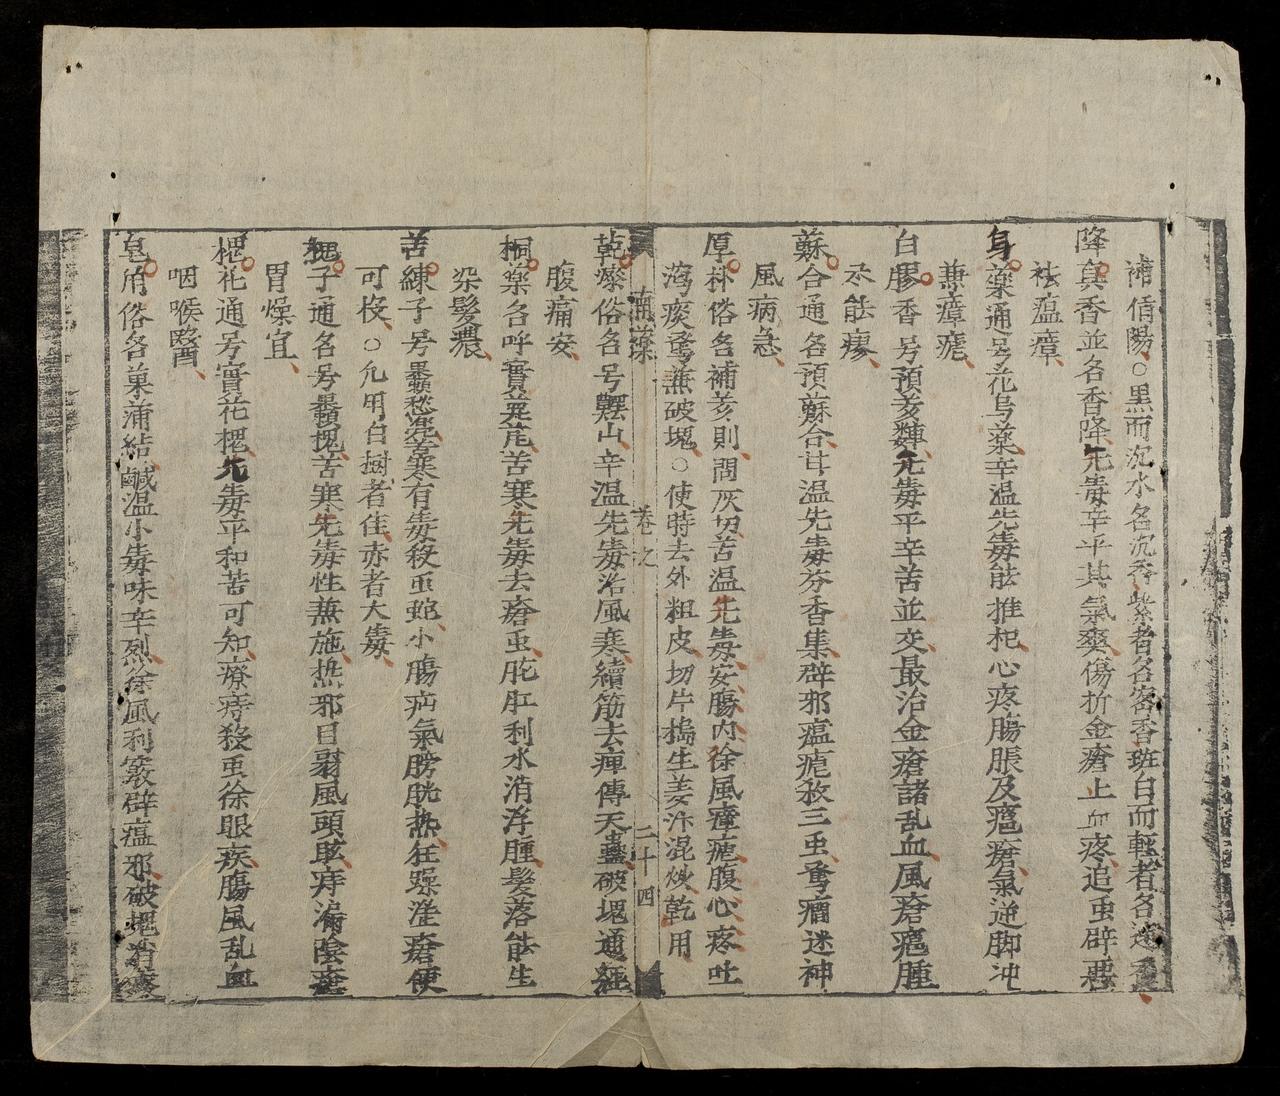 補偹陽○黒而沉水名沉香紫者名密香斑白而輕者名速香
降真香並名香降无毒辛平其氣爽傷折金瘡止血疼追虫辟惡
祛瘟瘴
烏薬通号花烏薬辛温无毒能推祀心疼腸脹及瘟瘡氣逆脚冲
兼瘴瘧
白膠香号預𦹳无毒平辛苦並交最治金瘡諸乱血風瘡瘟腫
尽能瘳
蘇合通名預蘇合甘温先毒芬香集辟邪瘟瘧殺三虫痫迷神
風病急
厚朴俗名補𦹳則問灰切苦温无毒安腸内徐風瘴瘧腹心疼吐
瀉痰兼破塊○使時去外粗皮切片搗生姜汁混炒乾用
南薬 卷之 二十四
乾漆俗名号山辛温先毒治風寒續筋去痺傳天蠱破塊通經
腹痛安
桐薬名呼實苦寒先毒去瘡虫肛利水消浮腫髮落能生
染髮濃
苦練子号苦寒有毒殺虫蛇小腸疝氣膀胱热狂躁瘡便
可杸○凡用白樹者佳赤者大毒
槐子通名号槐苦寒先毒性兼施热邪目翳風頭眩痔漏陰瘡
胃燥宜
槐花通号實花槐无毒平和苦可知療痔殺虫徐眼疾腸風乱血
咽喉醫
皂角俗名菓蒲結鹹温小毒味辛烈徐風利竅辟瘟邪破塊消